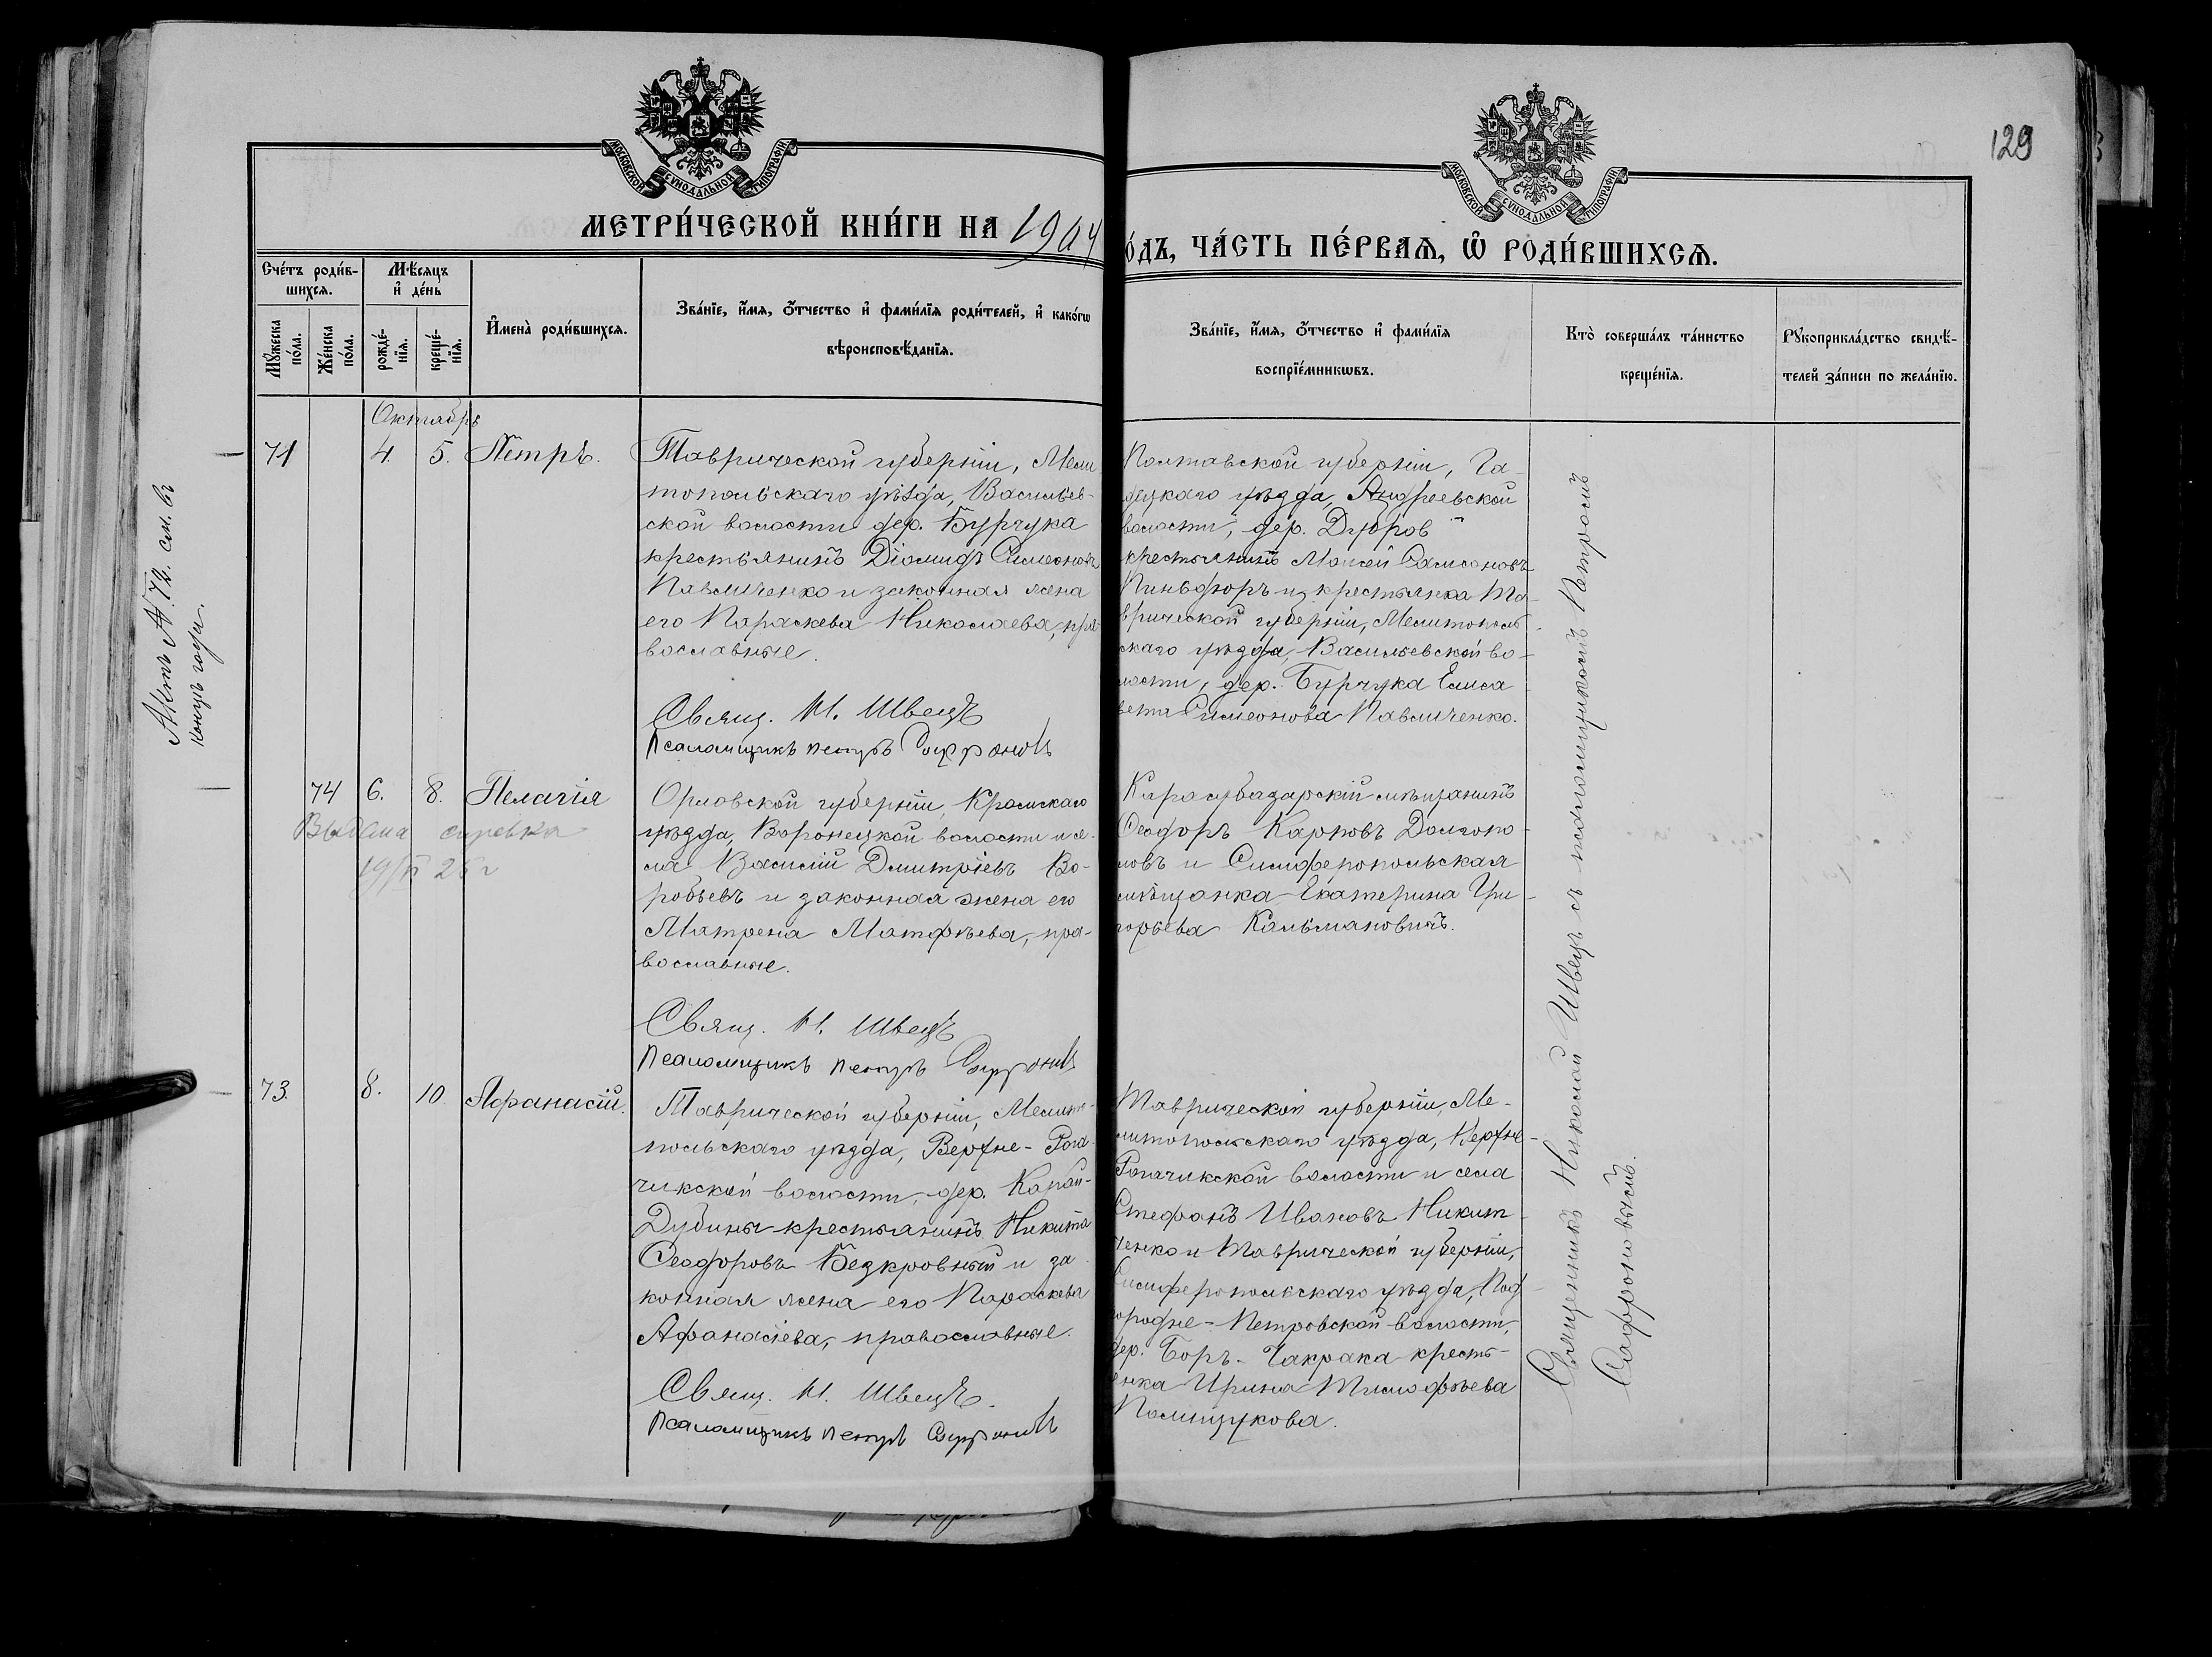 129
МОСКОВСКОЙ СѴНОДАЛЬНОЙ ТИПОГРАФІИ
МОСКОВСКОЙ СѴНОДАЛЬНОЙ ТИПОГРАФІИ
МЕТРИ́ЧЕСКОЙ КНИ́ГИ НА 1904
О́ДЪ, ЧА́СТЬ ПЕ́РВАЯ, Ѽ РОДИ́ВШИХСѦ.
Счéтъ роди́в-
шихсѧ.
Мѣ́сяцъ
и҆ де́нь
Мꙋ́жеска по́ла.
Же́нска по́ла.
рожде́-
нїѧ.
креще́-
нїѧ.
И҆мена̀ роди́вшихсѧ.
Зва́нїе, и҆́мѧ, ѻ҆́тчество и҆ фами́лїѧ роди́телей, и҆ како́гѡ
вѣроисповѣ́данїѧ.
Зва́нїе, и҆́мѧ, ѻ҆́тчество и҆ фами́лїѧ
воспрїе́мникѡвъ.
Кто̀ соверша́лъ та́инство
креще́нїѧ.
Рꙋкоприкла́дство свидѣ́-
телей за́писи по жела́нїю.
Актъ № 72. см. въ
концѣ года.
Октябрь
71 4. 5. Петръ.
Таврической губерніи, Мели
топольскаго уѣзда, Васильев-
ской волости дер. Бурчука
крестьянинъ Діомидъ Симеоновъ
Павличенко и законная жена
его Параскева Николаева, пра-
вославные.
Свящ. Н. Швецъ
Псаломщикъ Петръ Софроновъ
Полтавской губерніи, Га-
дяцкаго уѣзда, Андреевской
волости, дер.
крестьянинъ Моисей Самсоновъ
и крестьянка Та-
врической губерніи, Мелитополь
скаго уѣзда, Васильевской во-
лости, дер. Бурчука Елиса
вета Симеонова Павличенко.
74 6. 8. Пелагія
Выдана справка
19 26 г
Орловской губерніи, Кромскаго
уѣзда, Воронецкой волости и се-
ла Василій Дмитріевъ Во-
робьевъ и законная жена его
Матрена Матфѣева, пра-
вославные.
Свящ. Н. Швецъ
Псаломщикъ Петръ Софроновъ
Карасубазарскій мѣщанинъ
Ѳеодоръ Карповъ Долгопо-
ловъ и Симферопольская
мѣщанка Екатерина Гри-
горьева Кальмановичъ.
73. 8. 10 Аѳанасій.
Таврической губерніи, Мелито-
польскаго уѣзда, Верхне-Рога-
чикской волости, дер. Карай-
Дубины крестьянинъ Никита
Ѳеодоровъ Безкровный и за-
конная жена его Параскева
Аѳанасіева, православные.
Свящ. Н. Швецъ.
Псаломщикъ Петръ Софроновъ
Таврической губерніи, Ме-
литопольскаго уѣзда, Верхне-
Рогачикской волости и села
Стефанъ Ивановъ Никит-
ченко и Таврической губерніи,
Симферопольскаго уѣзда, Под
городне-Петровской волости,
дер. Боръ-Чакрака кресть-
янка Ирина Тимофѣева
Полищукова.
Священникъ Николай Швецъ съ псаломщикомъ Петромъ
Софроновымъ.